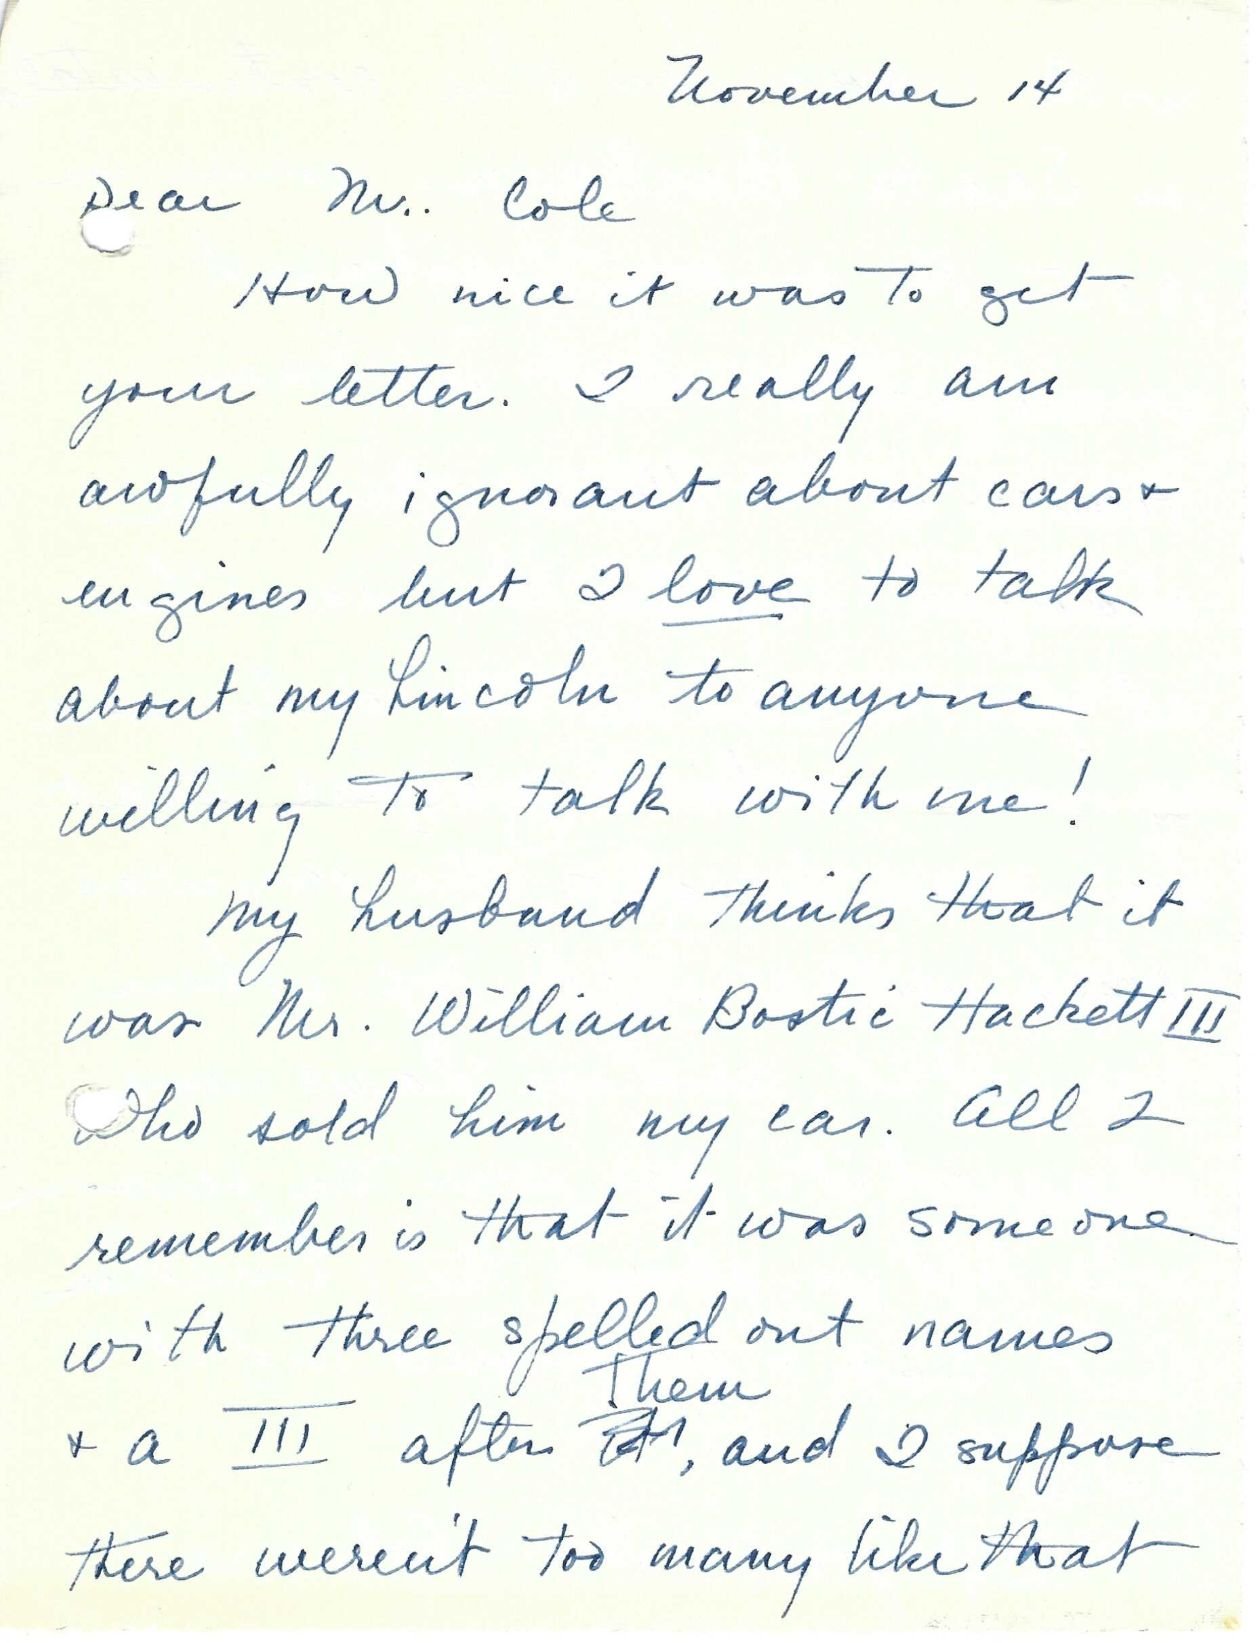 November 14
Dear Mr. Cole
How nice it was to get
your letter. I really am
awfully ignorant about cars +
engines but I love to talk
about my Lincoln to anyone
willing to talk with me!
My husband thinks that it
was Mr. William Bostic Hackett III
who sold him my car. All I
remember is that it was someone
with three spelled out names
them
+ a III after, and I suppose
there weren't too many like that